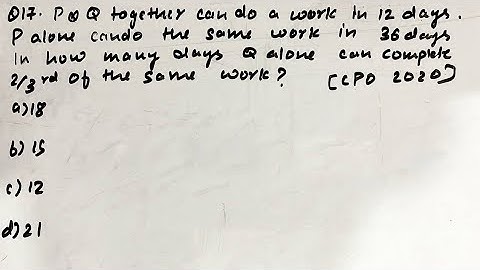 Q17. P & Q together can do a work in 12 days.
P alone cando the same work in 36 days
In how many days Q alone can complete
2/3rd of the same work? [CPO 2020]
a) 18
b) 15
c) 12
d) 21